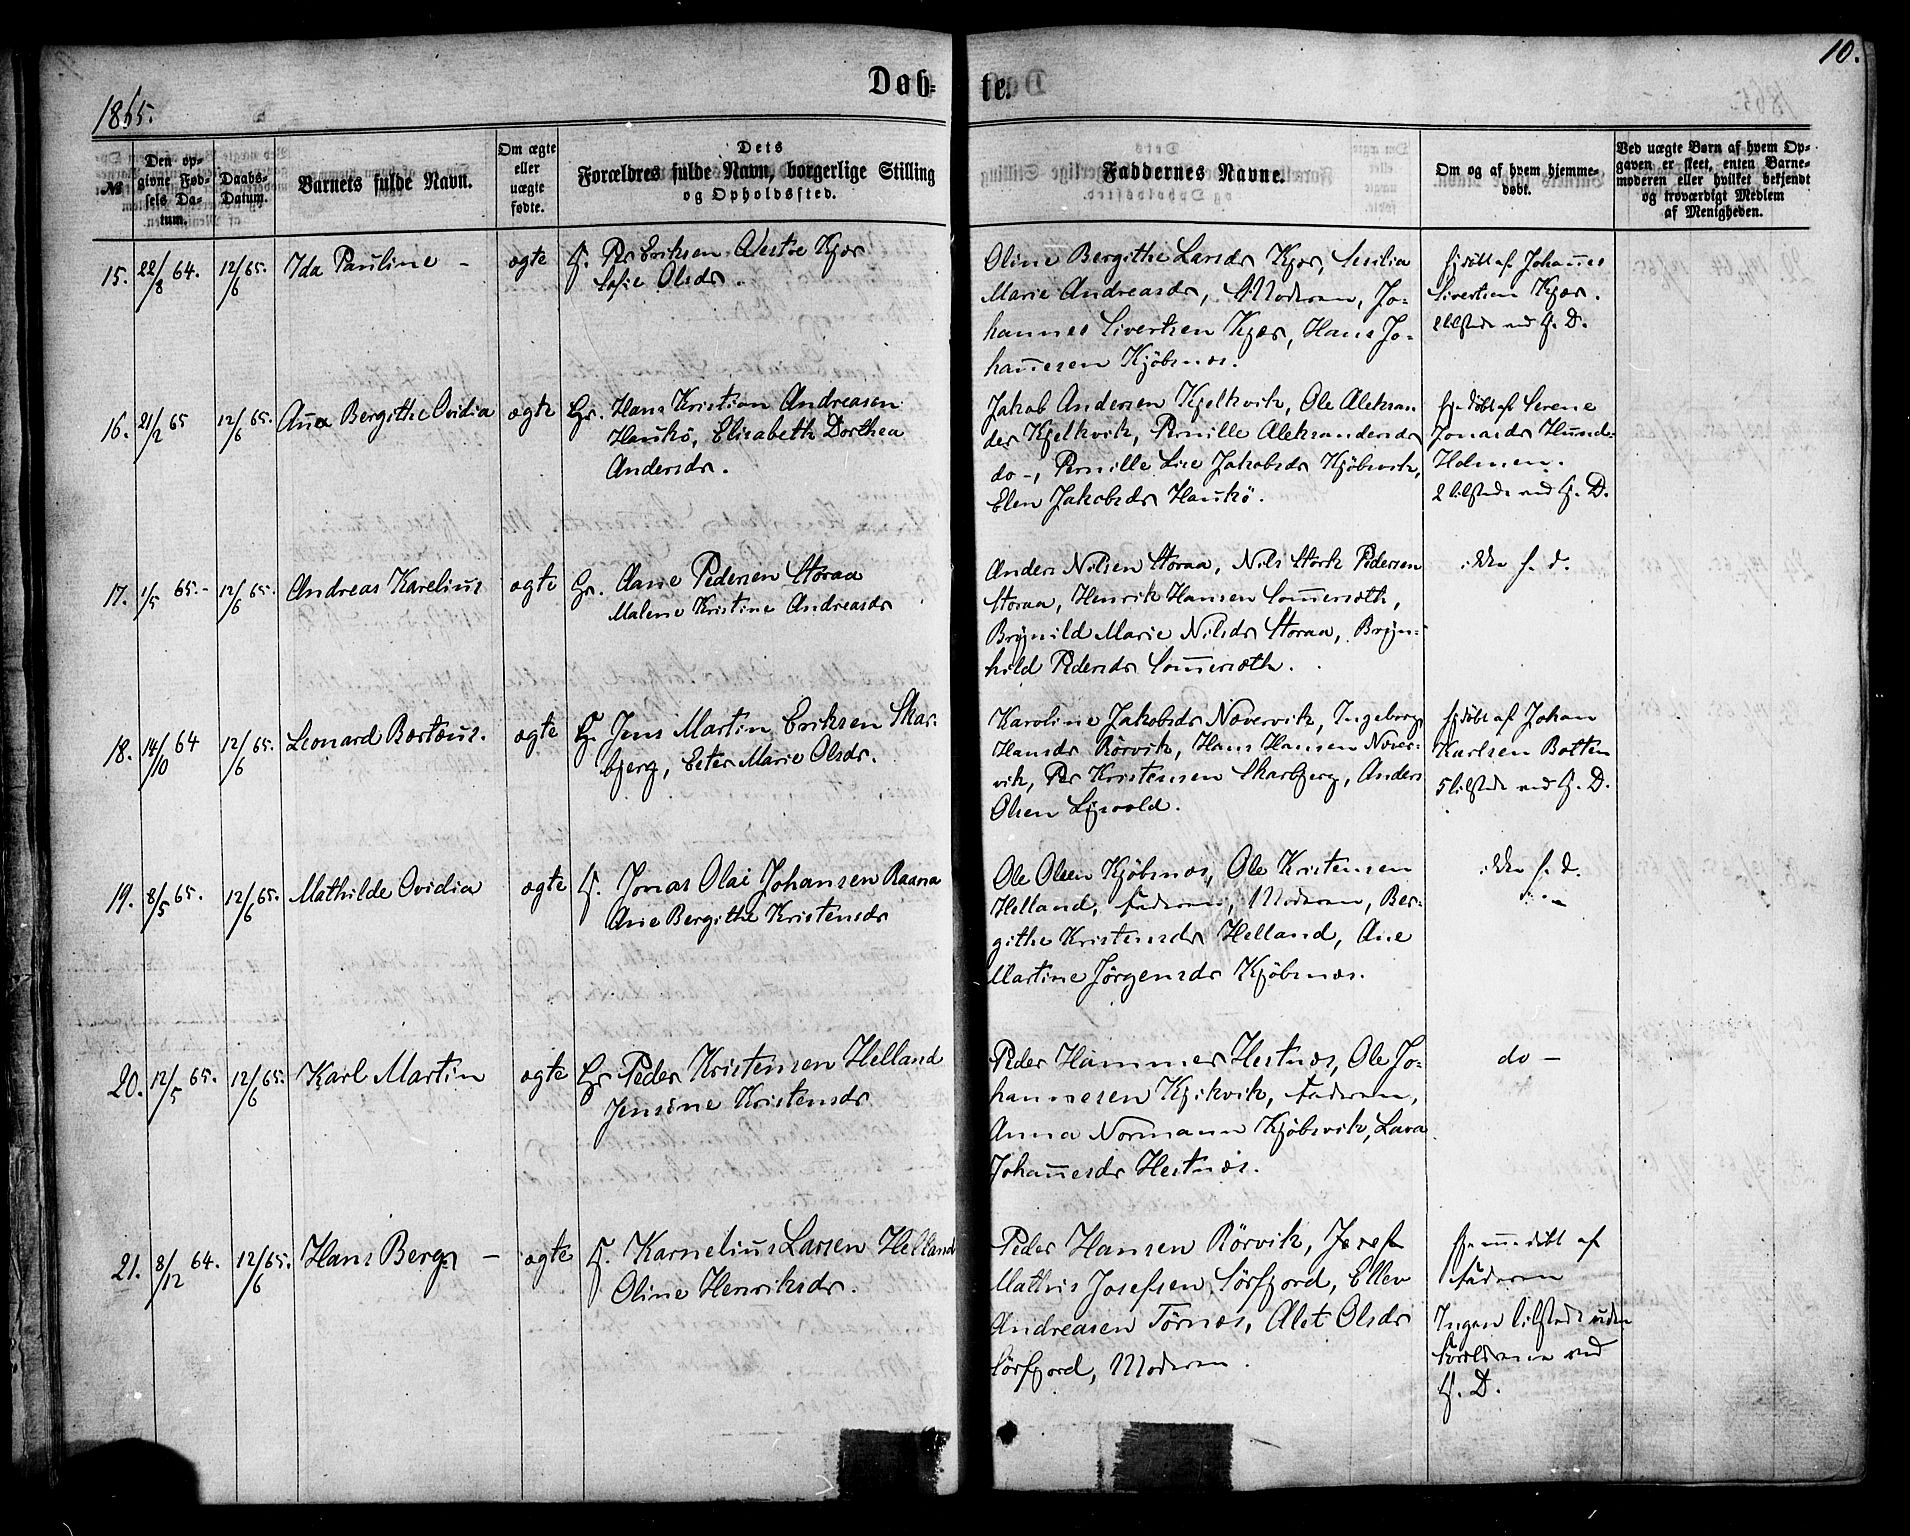 10.
Døb- te.
1865.
№
Den op-
givne Fød-
sels Da-
tum.
Daabs-
Datum.
Barnets fulde Navn.
Om ægte
eller
uægte
fødte.
Dets
Forældres fulde Navn, borgerlige Stilling
og Opholdssted.
Faddernes Navne.
Om og af hvem hjemme-
døbt.
Ved uægte Børn af hvem Op-
gaven er skeet, enten Barne-
moderen eller hvilket bekjendt
og troværdigt Medlem
af Menigheden.
15. 22/8 64. 12/6 65. Ida Pauline - ægte Per Eriksen Kjær
Sofie Olsdr.
Oline Bergithe Larsdr Kjær, Sesilia
Marie Andreasdr, Moderen, Jo-
hannes Sivertsen Kjær, Hans Jo-
hannesen Kjöbsnæs.
hjdöbt af Johannes
Sivertsen Kjær.
2 tilstede ved Hj. D.
16. 21/2 65 12/6 65. Anna Bergithe Ovidia ægte Gr. Hans Kristian Andreasen
Haukö, Elisabeth Dorthea
Andersdr.
Jakob Andersen Kjelkvik, Ole Aleksan-
der Kjelkvik, Pernille Aleksandersdr
do-, Pernille Lise Jakobsdr Kjöbsvik,
Elen Jakobsdr Haukö.
hjdöbt af Serene
Jonasdr Hund-
Holmen.
2 tilstede ved Hj. D.
17. 1/5 65.- 12/6 65. Andreas Karelius ægte Gr. Aane Pedersen Storaa
Malene Kristine Andreasdr
Anders Nilsen Storaa, Nils Stork Pedersen
Storaa, Henrik Hansen Sommersæth,
Brynild Marie Nilsdr Storaa, Bryn-
hild Pedersdr Sommersæth.
ikke h. d.
18. 14/10 64 12/6 65. Leonard Bertæus. ægte Jens Martin Eriksen Skar-
bjerg, Ester Marie Olsdr.
Karoline Jakobsdr Nævervik, Ingeborg
Hansdr Rörvik, Hans Hansen Næver-
vik, Per Kristensen Skarbjerg, Anders
Olsen
hjdöbt af Johan
Karlsen Botten
5 tilstede ved Hj. D.
19. 8/5 65. 12/6 65. Mathilde Ovidia ægte Jonas Olai Johansen Raana
Ane Bergithe Kristensdr
Ole Olsen Kjöbsnæs, Ole Kristensen
Helland, Faderen, Moderen, Ber-
githe Kristensdr Helland, Ane
Martine Jörgensdr Kjöbsnæs.
ikke h. d.
20. 12/5 65. 12/6 65. Karl Martin ægte Gr Peder Kristensen Helland
Jensine Kristensdr
Peder Hammer Hestnæs, Ole Jo-
hannesen Faderen,
Anna Normann Kjöbsvik, Lava
Johannesdr Hestnæs.
do -
21. 8/12 64. 12/6 65. Hans Berg - ægte Karnelius Larsen Helland
Oline Henriksdr.
Peder Hansen Rörvik, Josef
Mathis Josefsen Sörfjord, Ellev
Andreasen Törnæs, Alet Olsdr
Sörfjord, Moderen.
hjemmedöbt af
Faderen
Ingen tilstede uden
Forældrene ved
Hj. D.